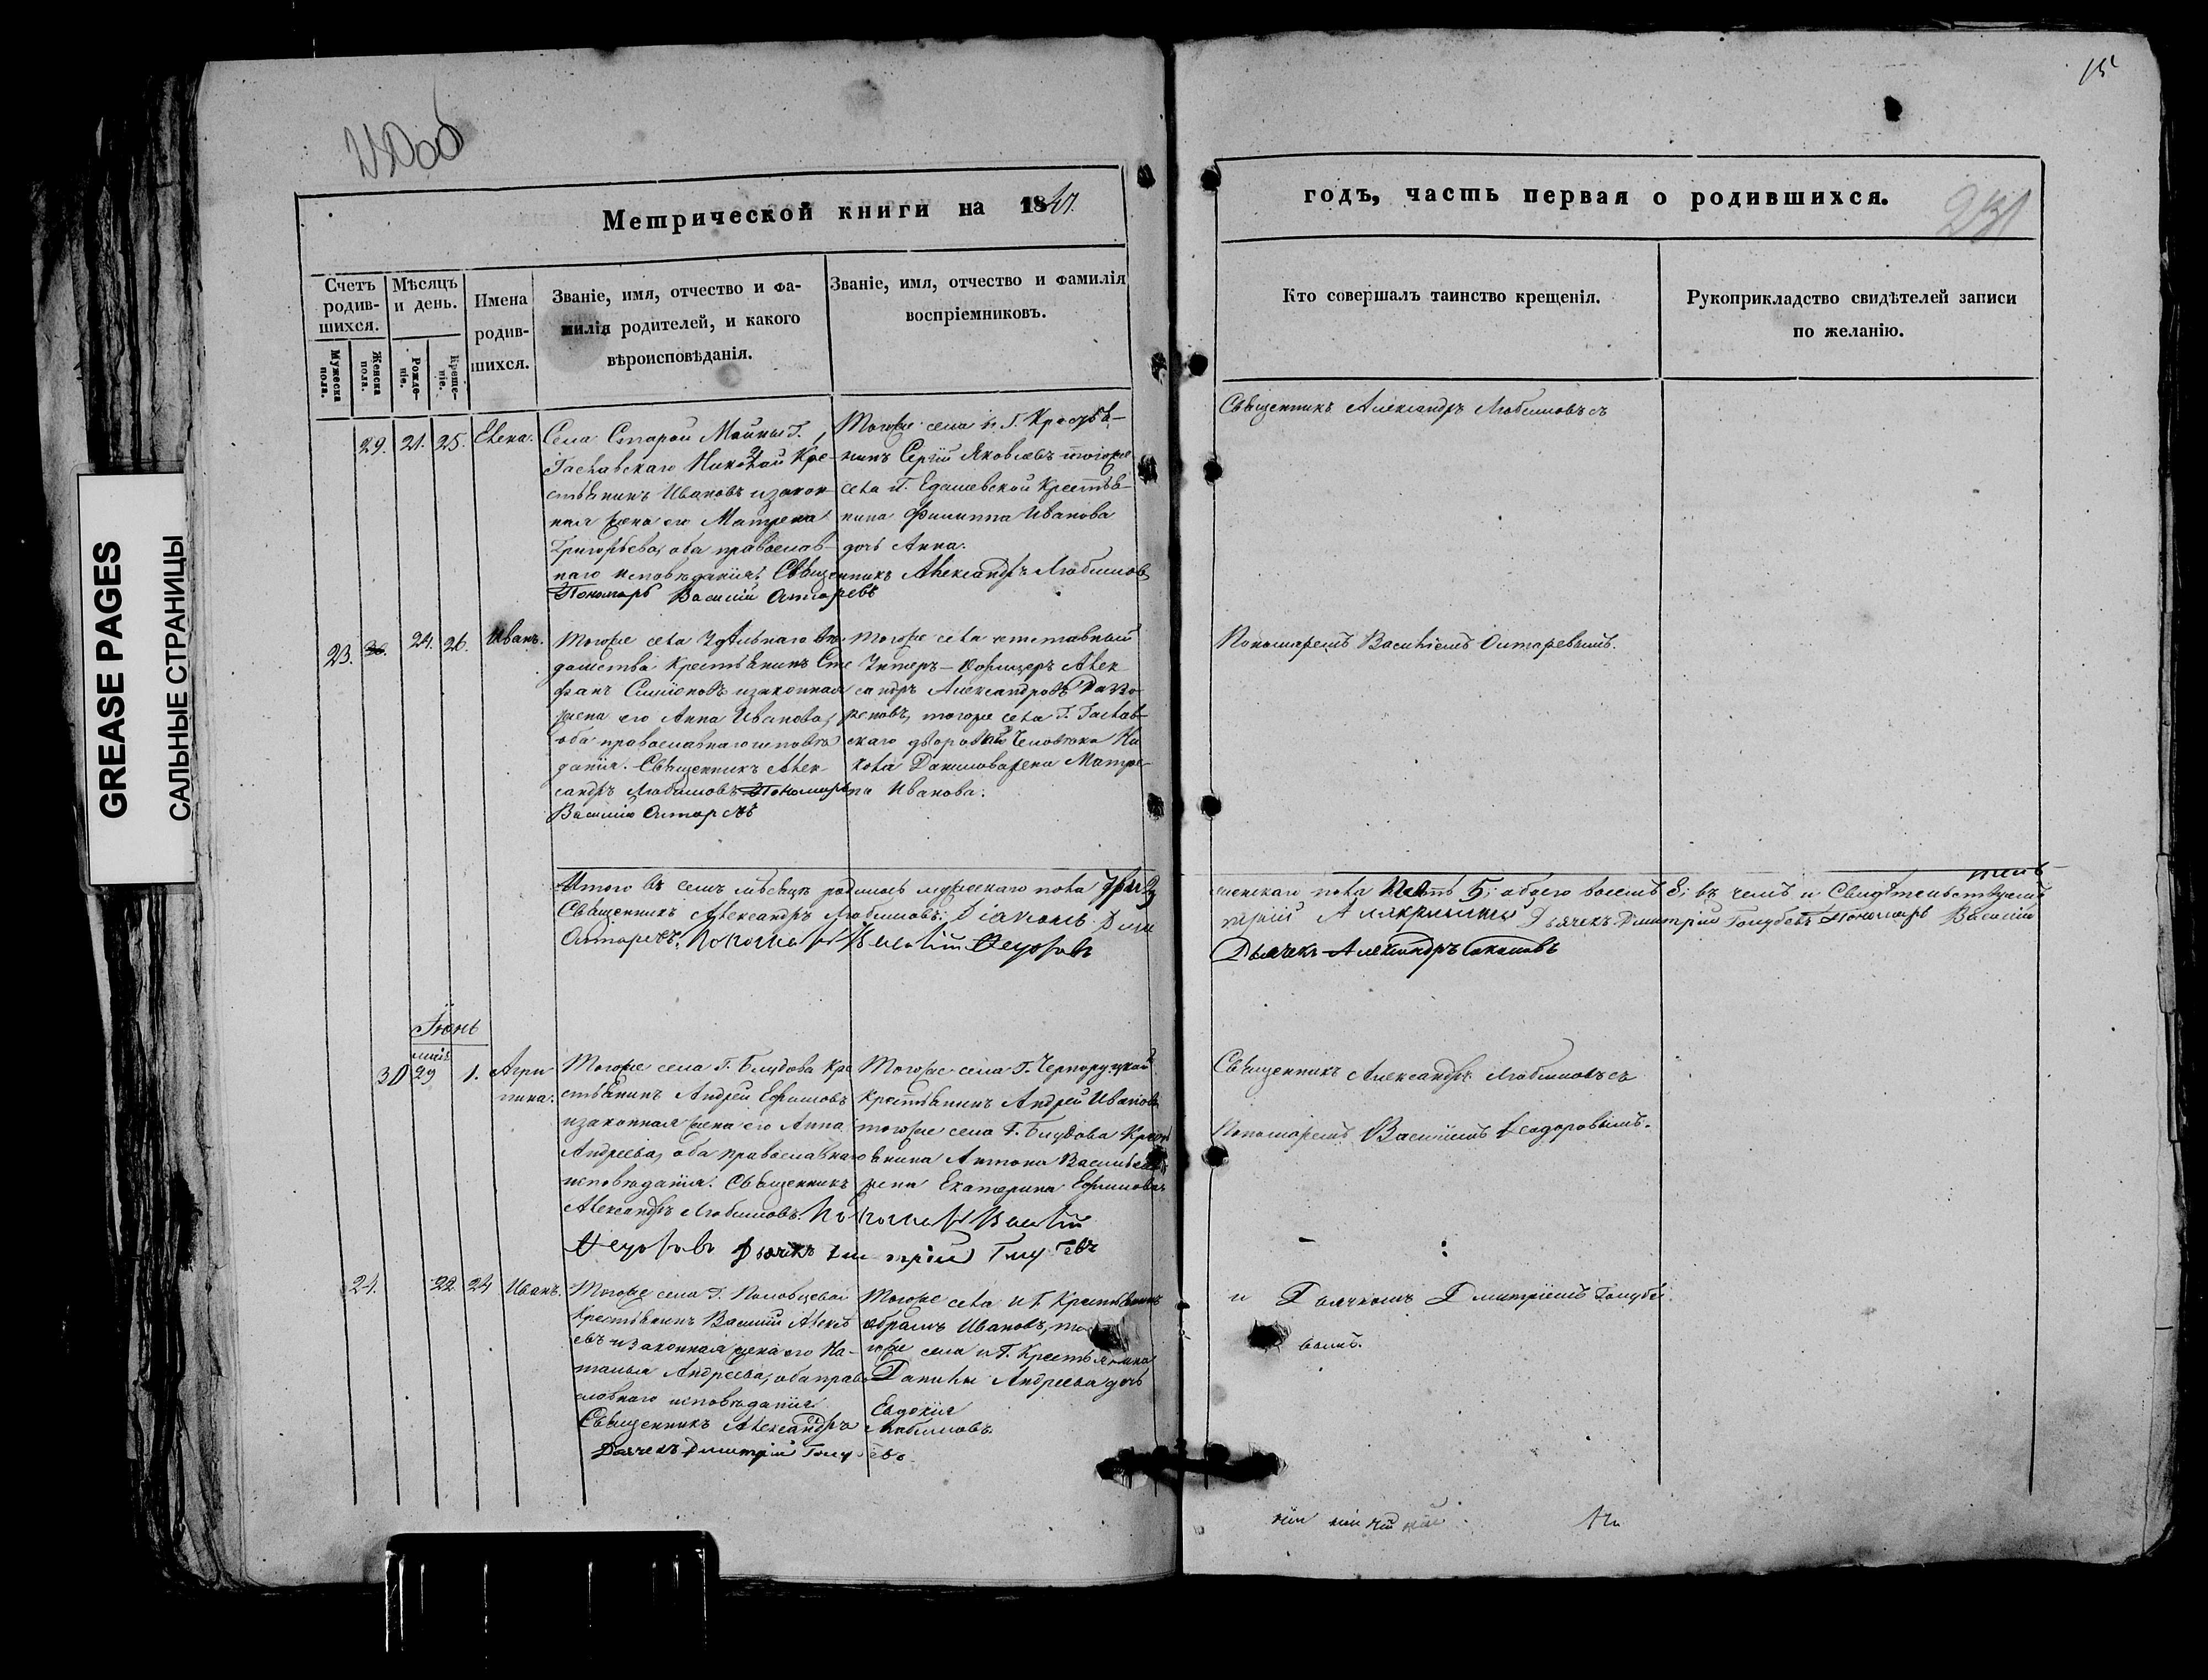 15
GREASE PAGES
САЛЬНЫЕ СТРАНИЦЫ
Метрической книги на 1847.
Счетъ родив-шихся.
Мужеска пола.
Женска пола.
Мѣсяцъ и день.
Рожде-нiе.
Креще-нiе.
Имена
родив-
шихся.
Званіе, имя, отчество и фа-
милія родителей, и какого
вѣроисповѣданія.
Званіе, имя, отчество и фамилія
воспріемниковъ.
29. 21. 25. Елена.
Села Старой Майны Г.
Николай Кре-
стьянинъ Ивановъ и закон-
ная жена его Матрена
Григорьева, оба православ-
наго исповѣданія. Священникъ Александръ Любимовъ
Пономарь Василій Онторевъ
Тогоже села и Г. Крестья-
нинъ Сергій Яковлевъ тогоже
села Г. Крестья-
нина Филиппа Иванова
дочь Анна.
23. 24. 26. Иванъ.
Тогоже села Удѣльнаго вѣ-
домства Крестьянинъ Сте
фанъ Симеоновъ и законная
жена его Анна Иванова,
оба православнаго исповѣ
данія. Священникъ Алек-
сандръ Любимовъ Пономарь
Василій Онторевъ
Тогоже села отставный
Унтеръ-Офицеръ Алек
сандръ Александровъ
тогоже села Г.
скаго двороваго человѣка
Данилова жена Матре-
на Иванова.
Итого въ семъ мѣсяцѣ родилось мужескаго пола три 3;
Священникъ Александръ Любимовъ. Діаконъ Дми
Онторевъ. Пономарь Василій Ѳедоровъ
Іюнь
30 маія 29 1. Агри
пина.
Тогоже села Г. Блудова Кре
стьянинъ Андрей Ефимовъ
и законная жена его Анна
Андреева, оба православнаго
исповѣданія. Священникъ
Александръ Любимовъ. Пономарь Василій
Ѳедоровъ Дьячекъ Дмитрій Голубевъ
Тогоже села Г. Черноруцкой
Крестьянинъ Андрей Ивановъ
тогоже села Г. Блудова Крест
ьянина Антона Васильева
жена Екатерина Ефимова.
24. 22 24 Иванъ.
Тогоже села Г. Половцевой
Крестьянинъ Василій Алексѣ
евъ и законная жена его На-
талья Андреева, оба право
славнаго исповѣданія
Священникъ Александръ Любимовъ.
Дьячекъ Дмитрій Голубевъ.
Тогоже села и Г. Крестьянинъ
Абрамъ Ивановъ, то
гоже села и Г. Крестьянина
Данилы Андреева дочь
Евдокія
годъ, часть первая о родившихся.
231
Кто совершалъ таинство крещенія.
Рукоприкладство свидѣтелей записи
по желанію.
Священникъ Александръ Любимовъ съ
Пономаремъ Василіемъ Онторевымъ.
женскаго пола пять 5; обоего восемь 8; въ чемъ и Свидѣтельствуемъ
трій Дьячекъ Дмитрій Голубевъ Пономарь Василій
Дьячекъ Александръ Соколовъ
Священникъ Александръ Любимовъ съ
Пономаремъ Василіемъ Ѳеодоровымъ.
и Дьячкомъ Дмитріемъ Голубе
вымъ.